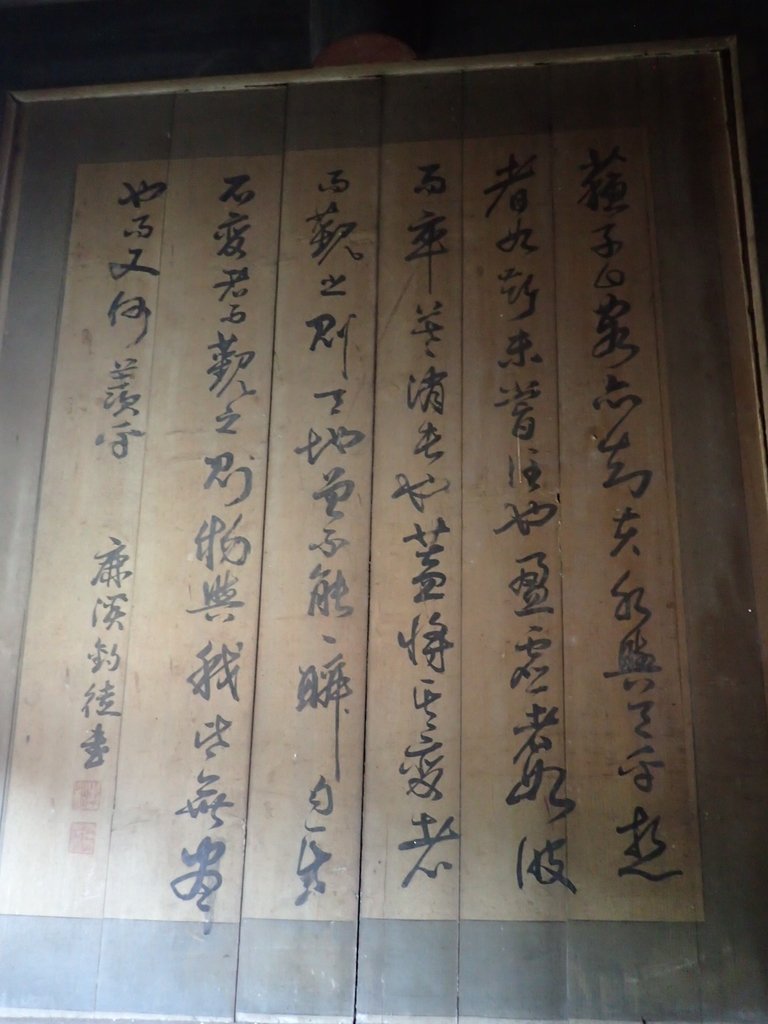 蘇子曰客亦知夫水與月乎逝
者如斯未嘗往也盈虛者如彼
而卒莫消長也蓋將其變者
而觀之則天地曾不能一瞬自其
不變者而觀之則物與我皆無盡
也而又何羨乎
溪釣徒書